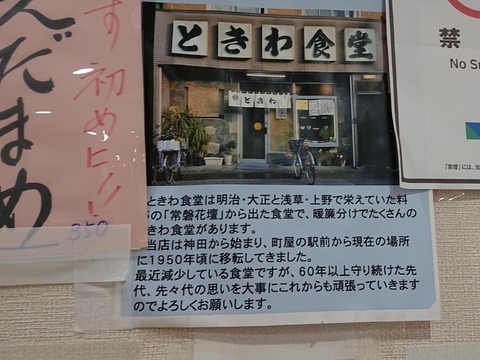 す 初めヒッ!!
んだまめ
350
ときわ食堂
ときわ
ときわ食堂は明治・大正と浅草・上野で栄えていた料
の「常磐花壇」から出た食堂で、暖簾分けでたくさんの
きわ食堂があります。
当店は神田から始まり、町屋の駅前から現在の場所
に1950年頃に移転してきました。
最近減少している食堂ですが、60年以上守り続けた先
代、先々代の思いを大事にこれからも頑張っていきます
のでよろしくお願いします。
禁
No S